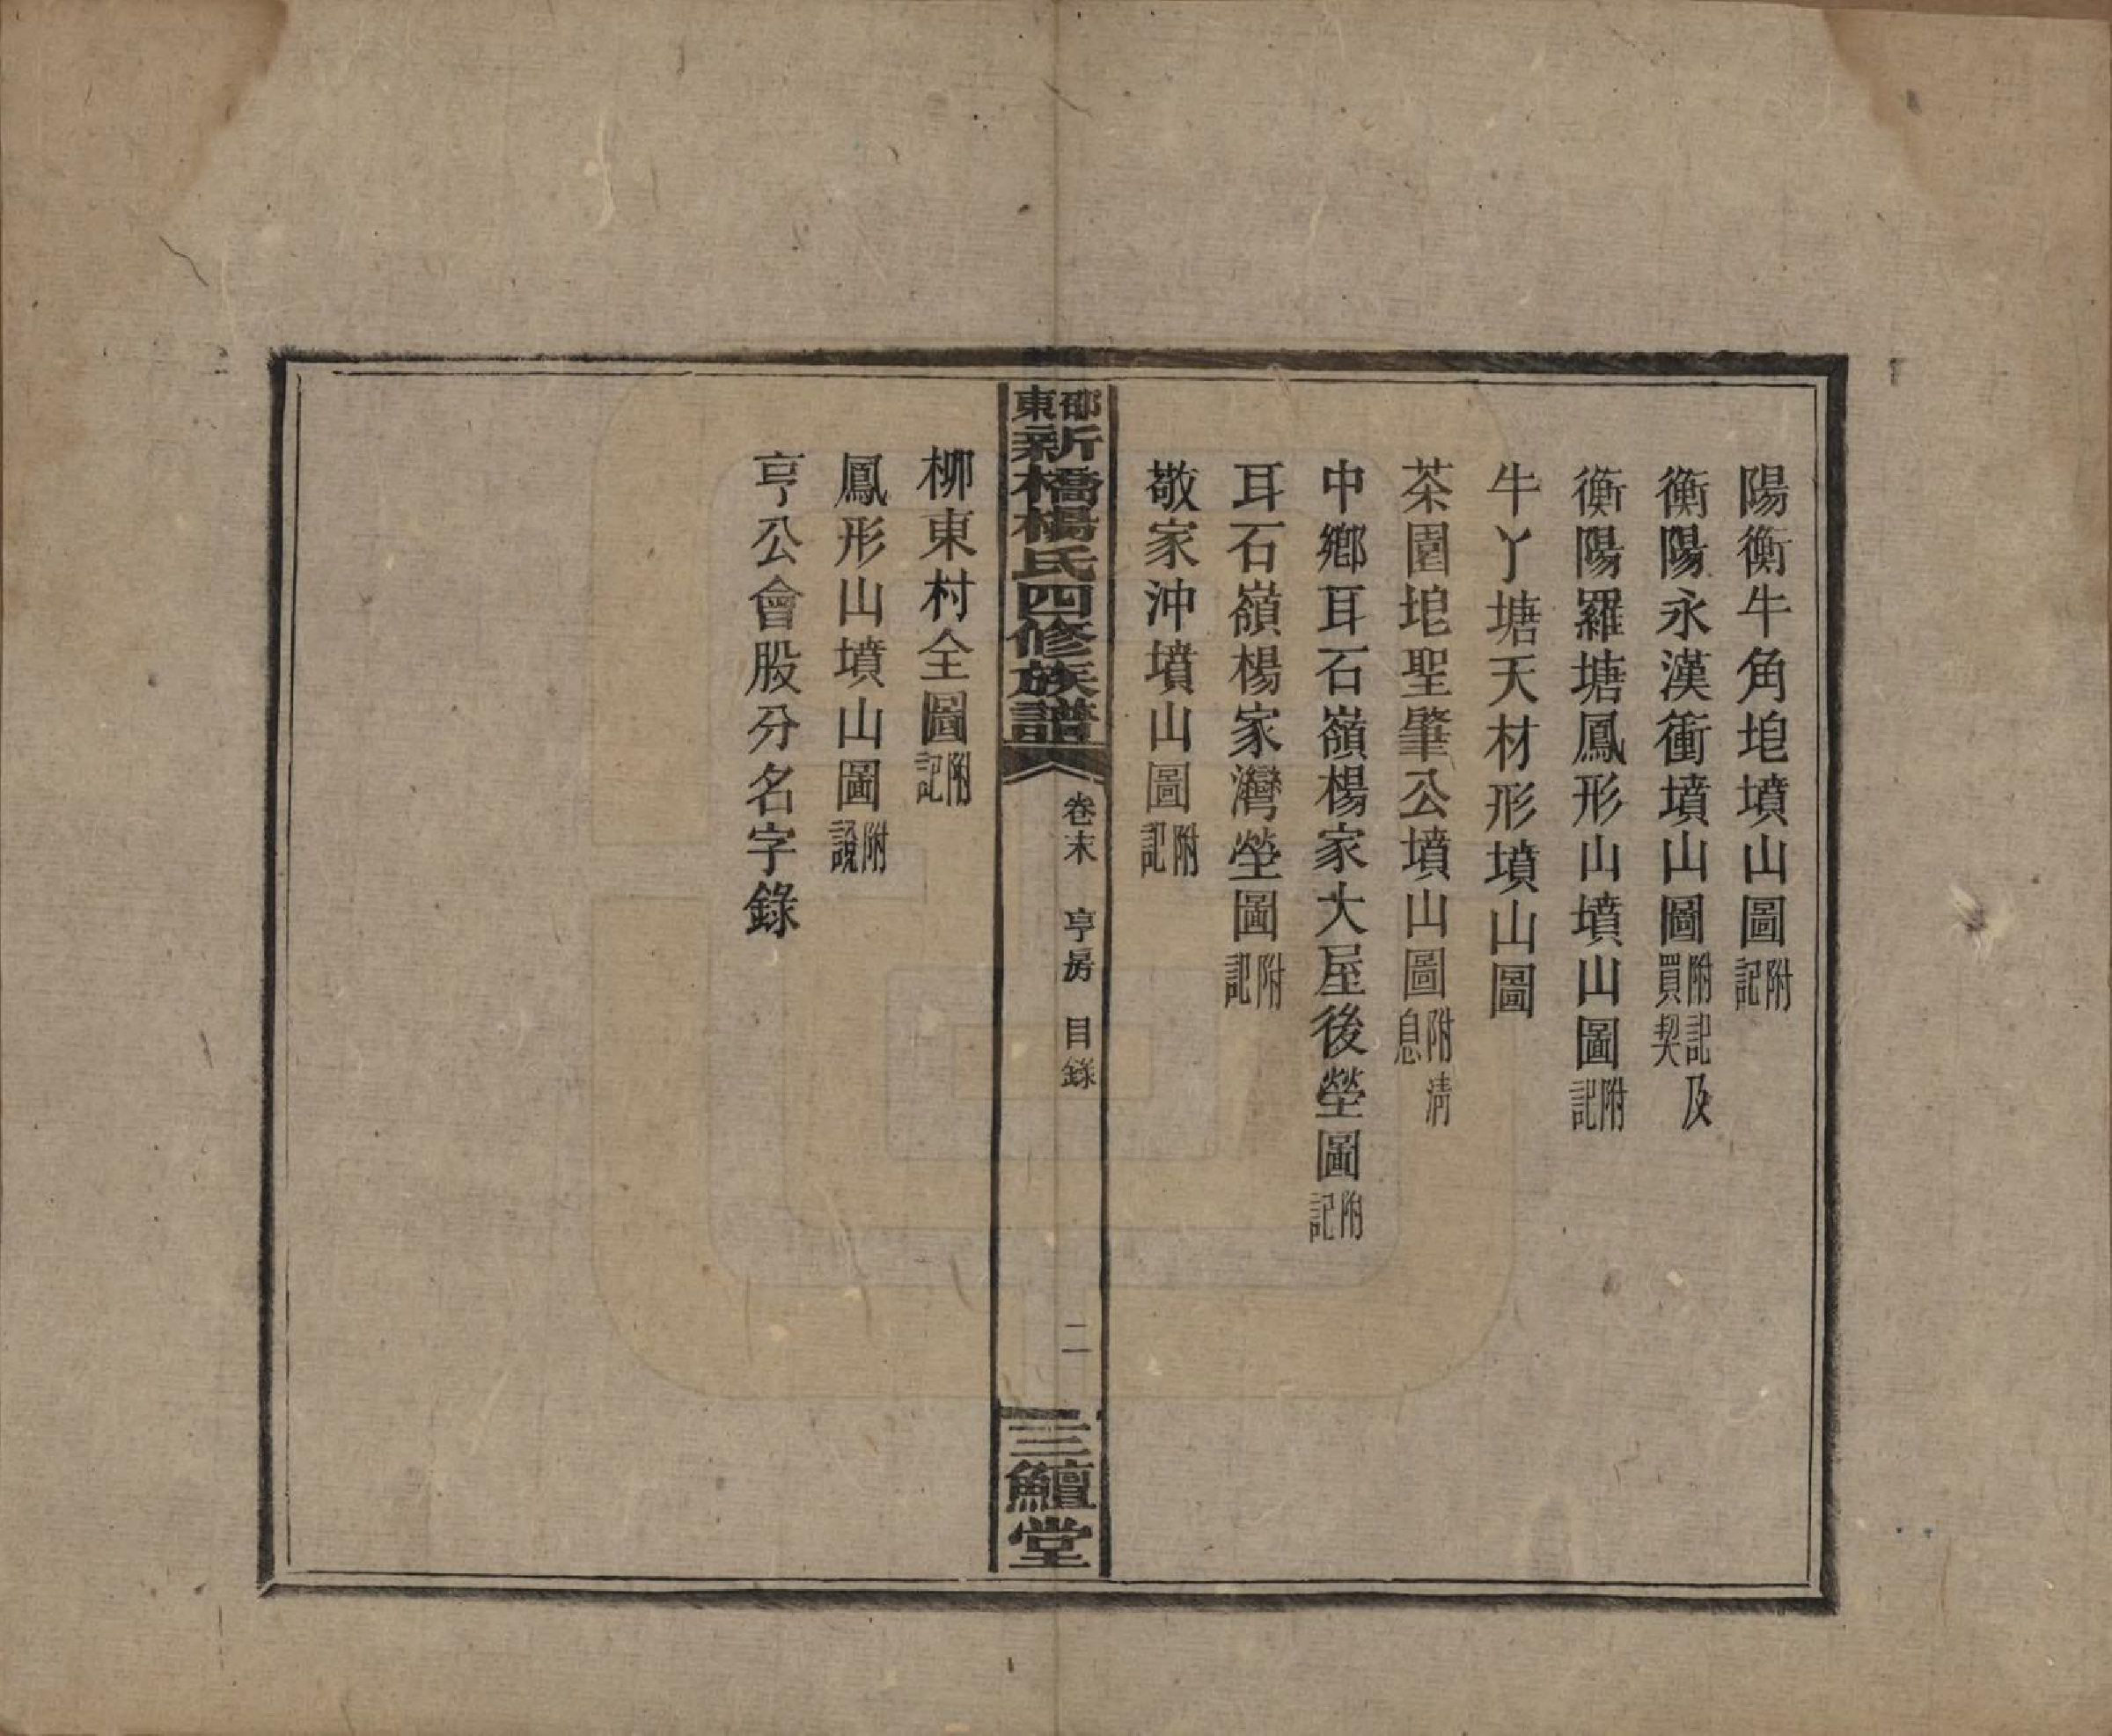 陽衡牛角坨墳山圖附記
衡陽永漢衝墳山圖附記及買契
衡陽羅塘鳳形山墳山圖附記
牛丫塘天材形墳山圖
茶園坨聖肇公墳山圖附清息
中鄉耳石嶺楊家大屋後塋圖附記
耳石嶺楊家灣塋圖附記
敬家沖墳山圖附記
邵東新橋楊氏四修族譜 卷末 亨房 目錄 二 三鱣堂
柳東村全圖附記
鳳形山墳山圖附說
亨公會股分名字錄